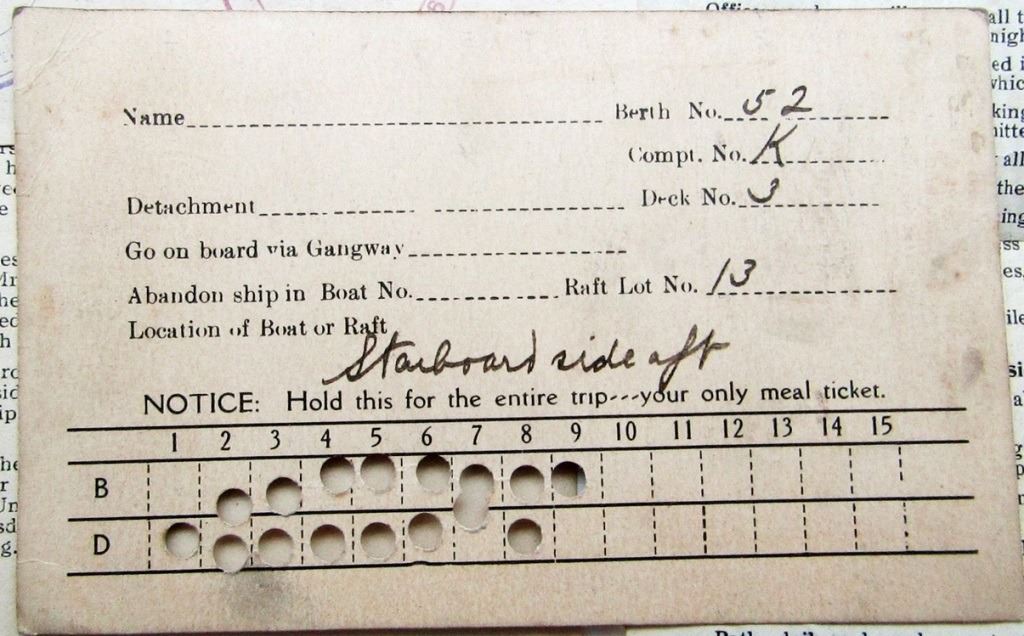 Name Berth No. 52
Compt. No. K
Detachment Deck No. 3
Go on board via Gangway
Abandon ship in Boat No. Raft Lot No. 13
Location of Boat or Raft
Starboard side aft
NOTICE: Hold this for the entire trip---your only meal ticket.
1 2 3 4 5 6 7 8 9 10 11 12 13 14 15
B
D